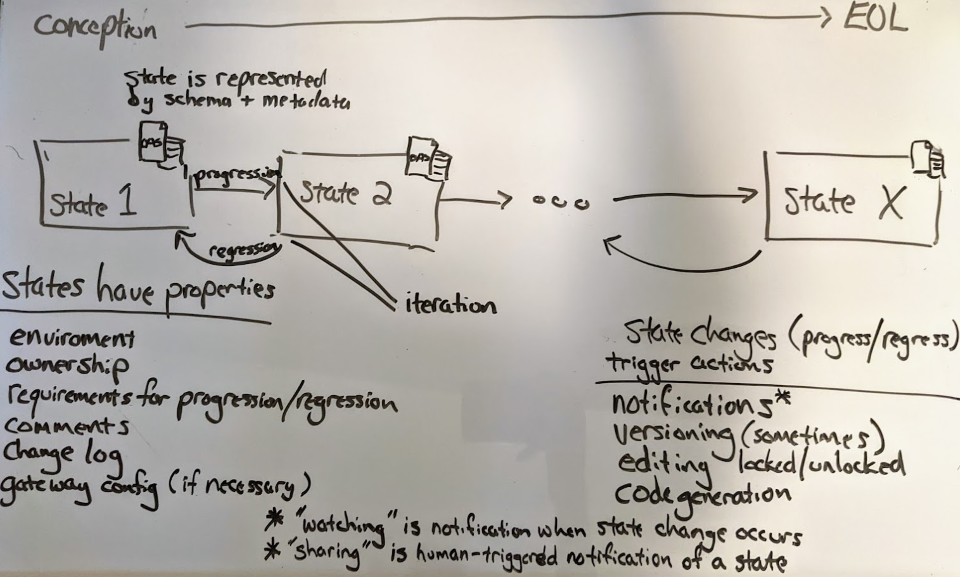 conception
EOL
State is represented
by schema + metadata
OAS
OAS
State 1
progression
State 2
State X
regression
iteration
States have properties
enviroment
ownership
requirements for progression/regression
comments
change log
gateway config (if necessary)
State changes (progress/regress)
trigger actions
notifications*
versioning (sometimes)
editing locked/unlocked
code generation
* "watching" is notification when state change occurs
* "sharing" is human-triggered notification of a state